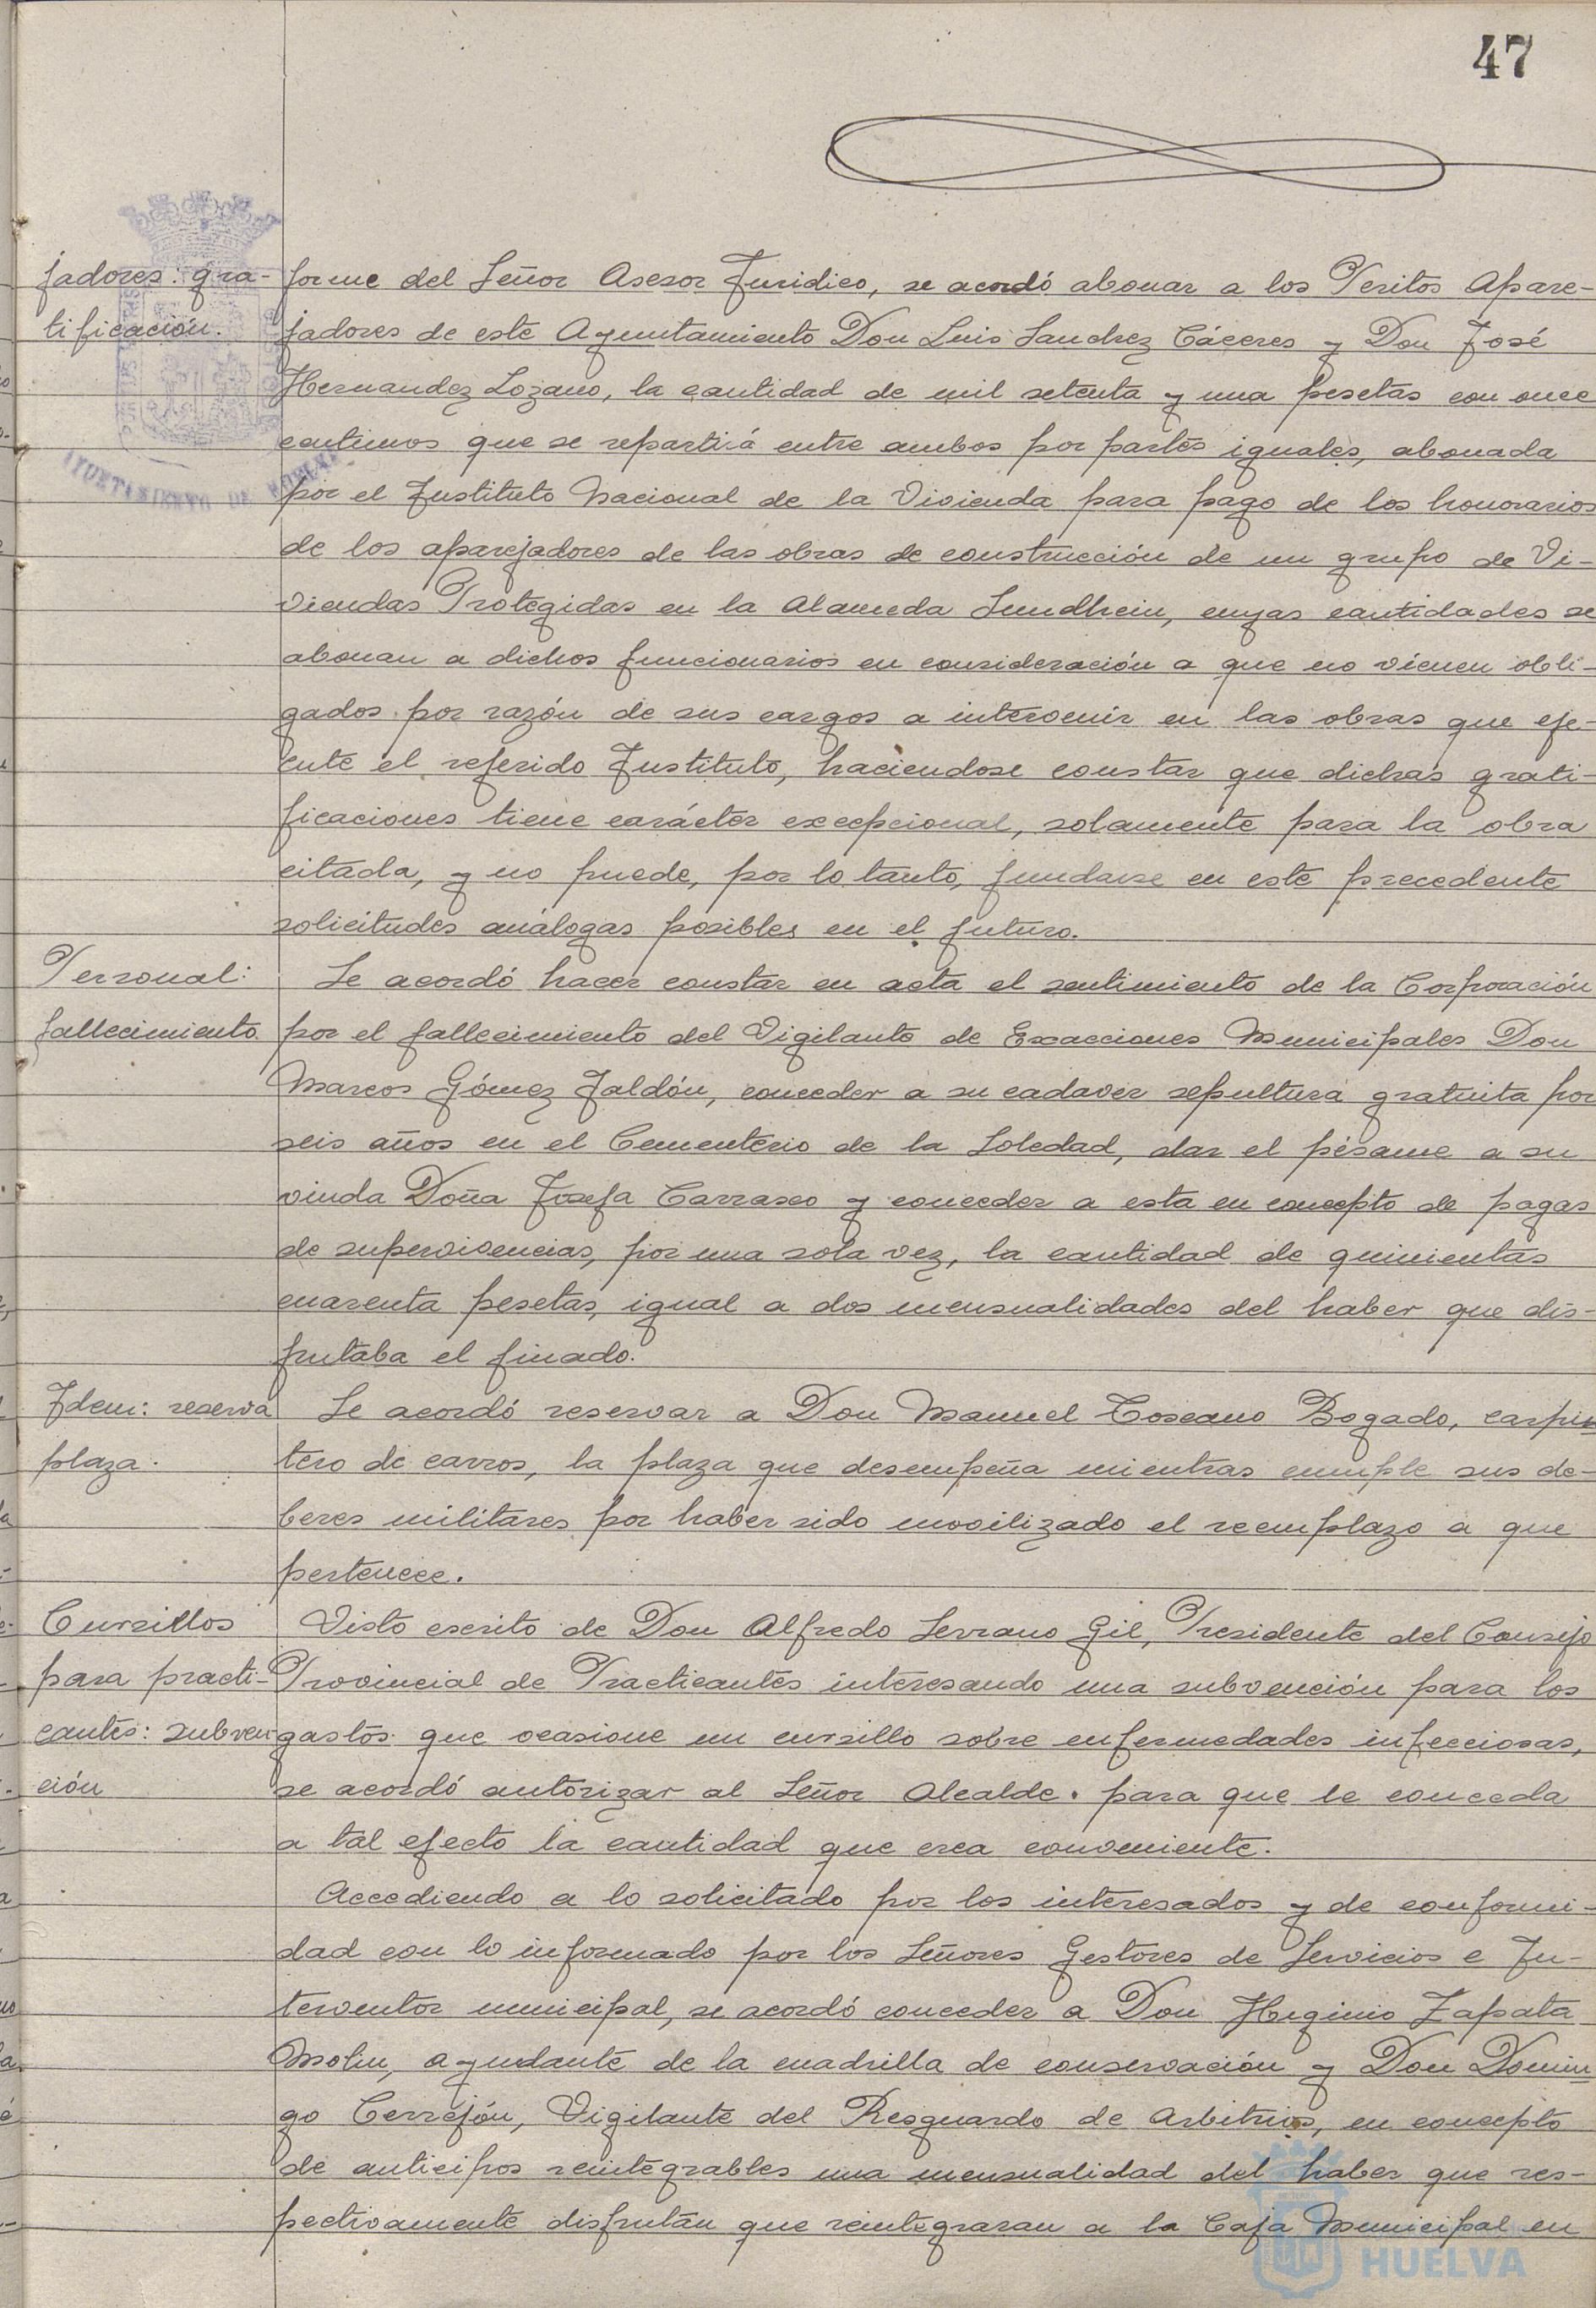 47
jadores: gra-
tificación.
forme del Señor Asesor Juridico, se acordó abonar a los Peritos Apare-
jadores de este Ayuntamiento Don Luis Sanchez Cáceres y Don José
Hernandez Lozano, la cantidad de mil setenta y una pesetas con once
centimos que se repartirá entre ambos por partes iguales, abonada
por el Instituto Nacional de la Vivienda para pago de los honorarios
de los aparejadores de las obras de construcción de un grupo de Vi-
viendas Protegidas en la Alameda Sundhein, cuyas cantidades se
abonan a dichos funcionarios en consideración a que no vienen obli-
gados por razón de sus cargos a intervenir en las obras que eje-
cute el referido Instituto, haciendose constar que dichas grati-
ficaciones tiene carácter excepcional, solamente para la obra
citada, y no puede, por lo tanto, fundarse en este precedente
solicitudes análogas posibles en el futuro.
Personal:
fallecimiento.
Se acordó hacer constar en acta el sentimiento de la Corporación
por el fallecimiento del Vigilante de Exacciones Municipales Don
Marcos Gómez Jaldón, conceder a su cadaver sepultura gratuita por
seis años en el Cementerio de la Soledad, dar el pésame a su
viuda Doña Josefa Carrasco y conceder a esta en concepto de pagas
de supervivencias, por una sola vez, la cantidad de quinientas
cuarenta pesetas, igual a dos mensualidades del haber que dis-
frutaba el finado.
Idem: reserva
plaza.
Se acordó reservar a Don Manuel Toscano Bogado, carpin
tero de carros, la plaza que desempeña mientras cumple sus de-
beres militares por haber sido movilizado el reemplazo a que
pertenece.
Cursillos
para practi-
cantes: subven
ción
Visto escrito de Don Alfredo Serrano Gil, Presidente del Consejo
Provincial de Practicantes interesando una subvención para los
gastos que ocasione un cursillo sobre enfermedades infecciosas,
se acordó autorizar al Señor Alcalde. para que le conceda
a tal efecto la cantidad que crea conveniente.
Accediendo a lo solicitado por los interesados y de conformi-
dad con lo informado por los Señores Gestores de Servicios e In-
terventor municipal, se acordó conceder a Don Higinio Zapata
Molin, ayudante de la cuadrilla de conservación y Don Domin
go Cerrejón, Vigilante del Resguardo de Arbitrios, en concepto
de anticipos reintegrables una mensualidad del haber que res-
pectivamente disfrutan que reintegraran a la Caja Municipal en
AYUNTAMIENTO DE HUELVA
HUELVA